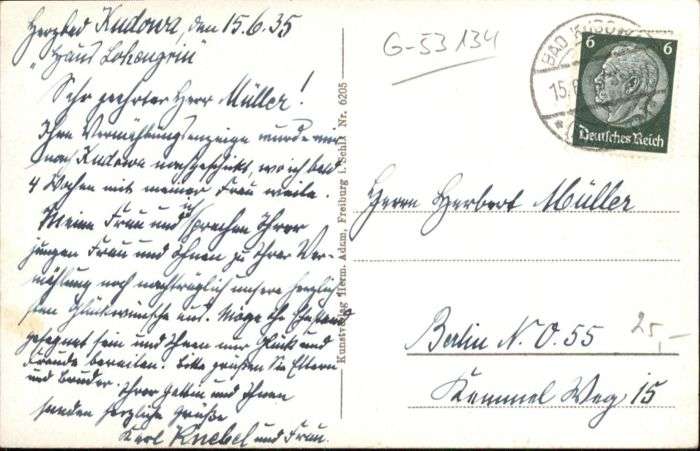 Herzbad Kudowa, den 15.6.35
"Haus Lohengrin"
Sehr geehrter Herr Müller!
Ihre Vermählungsanzeige wurde mir
nach Kudowa nachgeschickt, wo ich bald
4 Wochen mit meiner Frau weile.
Meine Frau und ich sprechen Ihrer
jungen Frau und Ihnen zu Ihrer Ver-
mählung noch nachträglich unsere herzlich-
sten Glückwünsche aus. Möge Ihr Ehestand
gesegnet sein und Ihnen nur Glück und
Freude bereiten. Bitte grüßen Sie Eltern
und Bruder. Ihrer Gattin und Ihnen
senden herzliche Grüße
Karl Knebel und Frau.
Kunstverlag Herm. Adam, Freiburg i. Schls. Nr. 6205
G-53 134
BAD KUDOWA
15.6
6 6
Deutsches Reich
Herrn Herbert Müller
Berlin N.O.55
25,-
Kemmel Weg 15